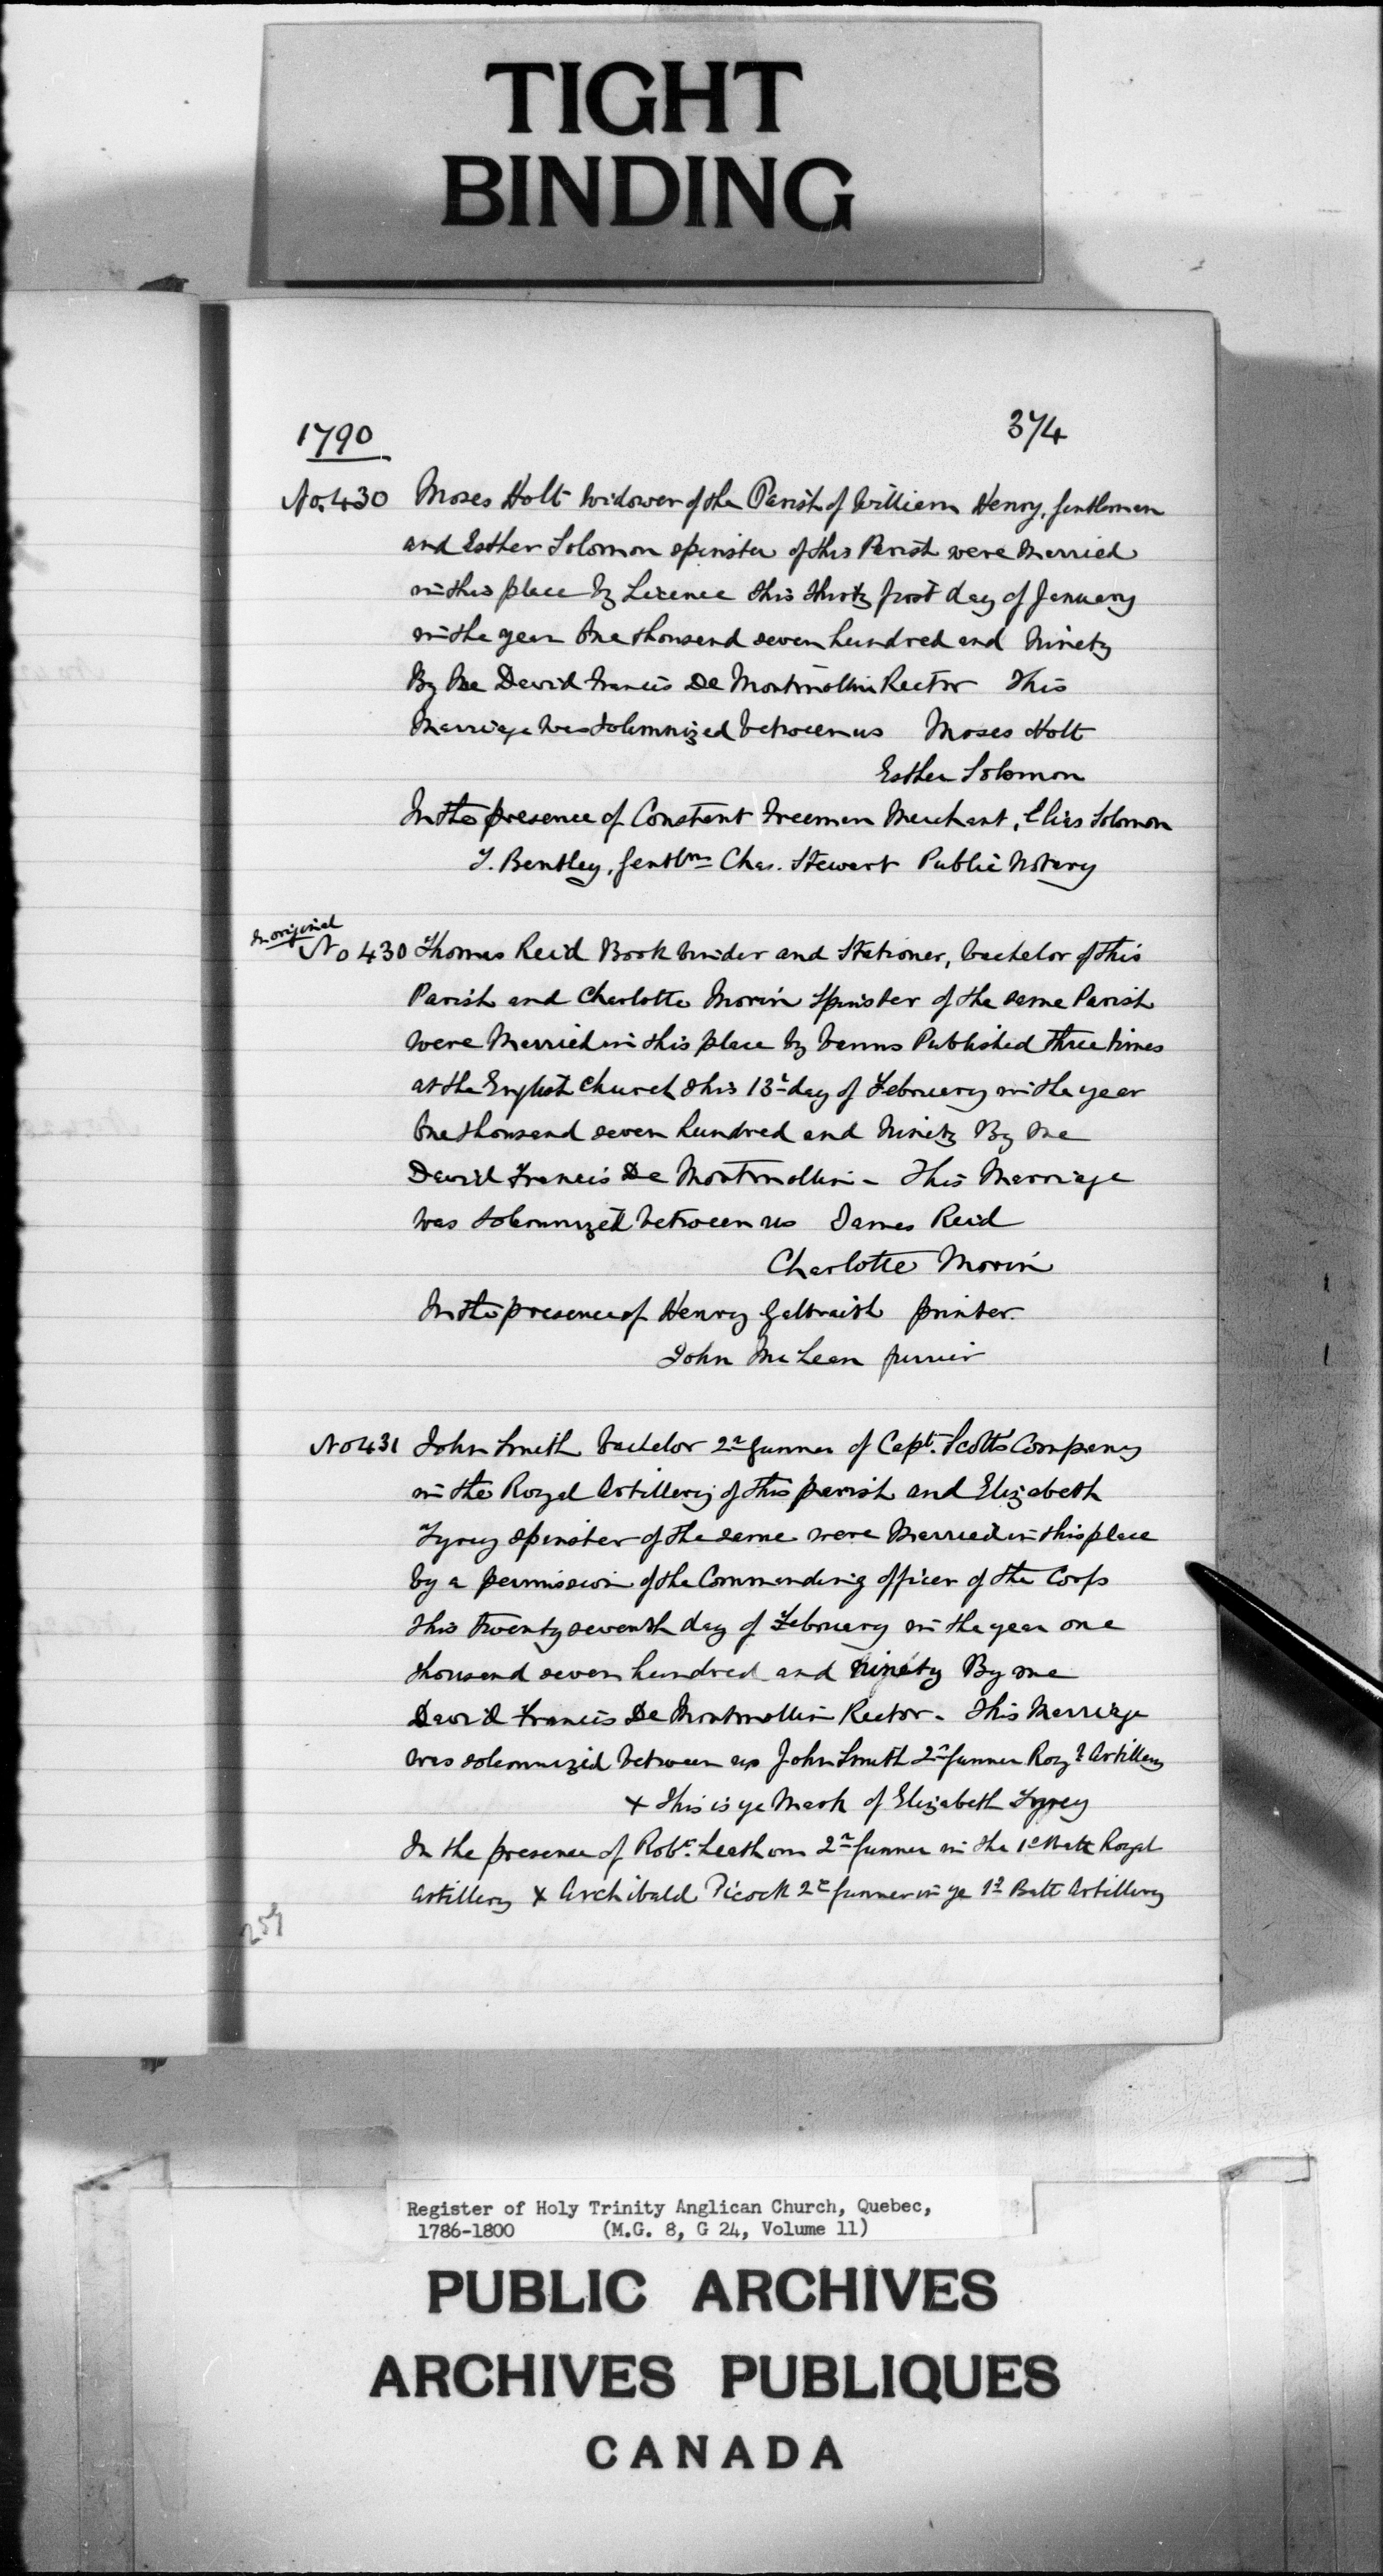 TIGHT
BINDING
1790
374
No. 430 Moses Holt Widower of the Parish of William Henry, Gentleman
and Esther Solomon spinster of this Parish were Married
in this place by Licence this thirty first day of January
in the year One thousand seven hundred and Ninety
By Me David Francis De Montmollin Rector This
Marriage was solemnized between us Moses Holt
Esther Solomon
In the presence of Constant Freeman Merchant, Elias Solomon
T. Bentley, Gentlmn Chas. Stewart Public Notary
In original
No 430 Thomas Reid Book binder and Stationer, bachelor of this
Parish and Charlotte Morin Spinster of the same Parish
were Married in this place by banns Published three times
at the English Church this 13th day of February in the year
One thousand seven hundred and Ninety By Me
David Francis De Montmollin - This Marriage
was solemnized between us James Reid
Charlotte Morin
In the presence of Henry Galbraith printer.
John McLean furrier
No 431 John Smith bachelor 2d gunner of Capt. Scotts Company
in the Royal Artillery of this parish and Elizabeth
Tyrey spinster of the same were Married in this place
by a permission of the Commanding officer of the Corps
this twenty seventh day of February in the year one
thousand seven hundred and ninety By me
David Francis De Montmollin Rector - This Marriage
was solemnized between us John Smith 2d gunner Royl Artillery
x This is ye Mark of Elizabeth Tyrey
In the presence of Robt. Leathom 2d gunner in the 1st Batt Royal
Artillery x Archibald Picock 2d gunner in ye 1st Batt Artillery
259
Register of Holy Trinity Anglican Church, Quebec,
1786-1800 (M.G. 8, G 24, Volume 11)
PUBLIC ARCHIVES
ARCHIVES PUBLIQUES
CANADA